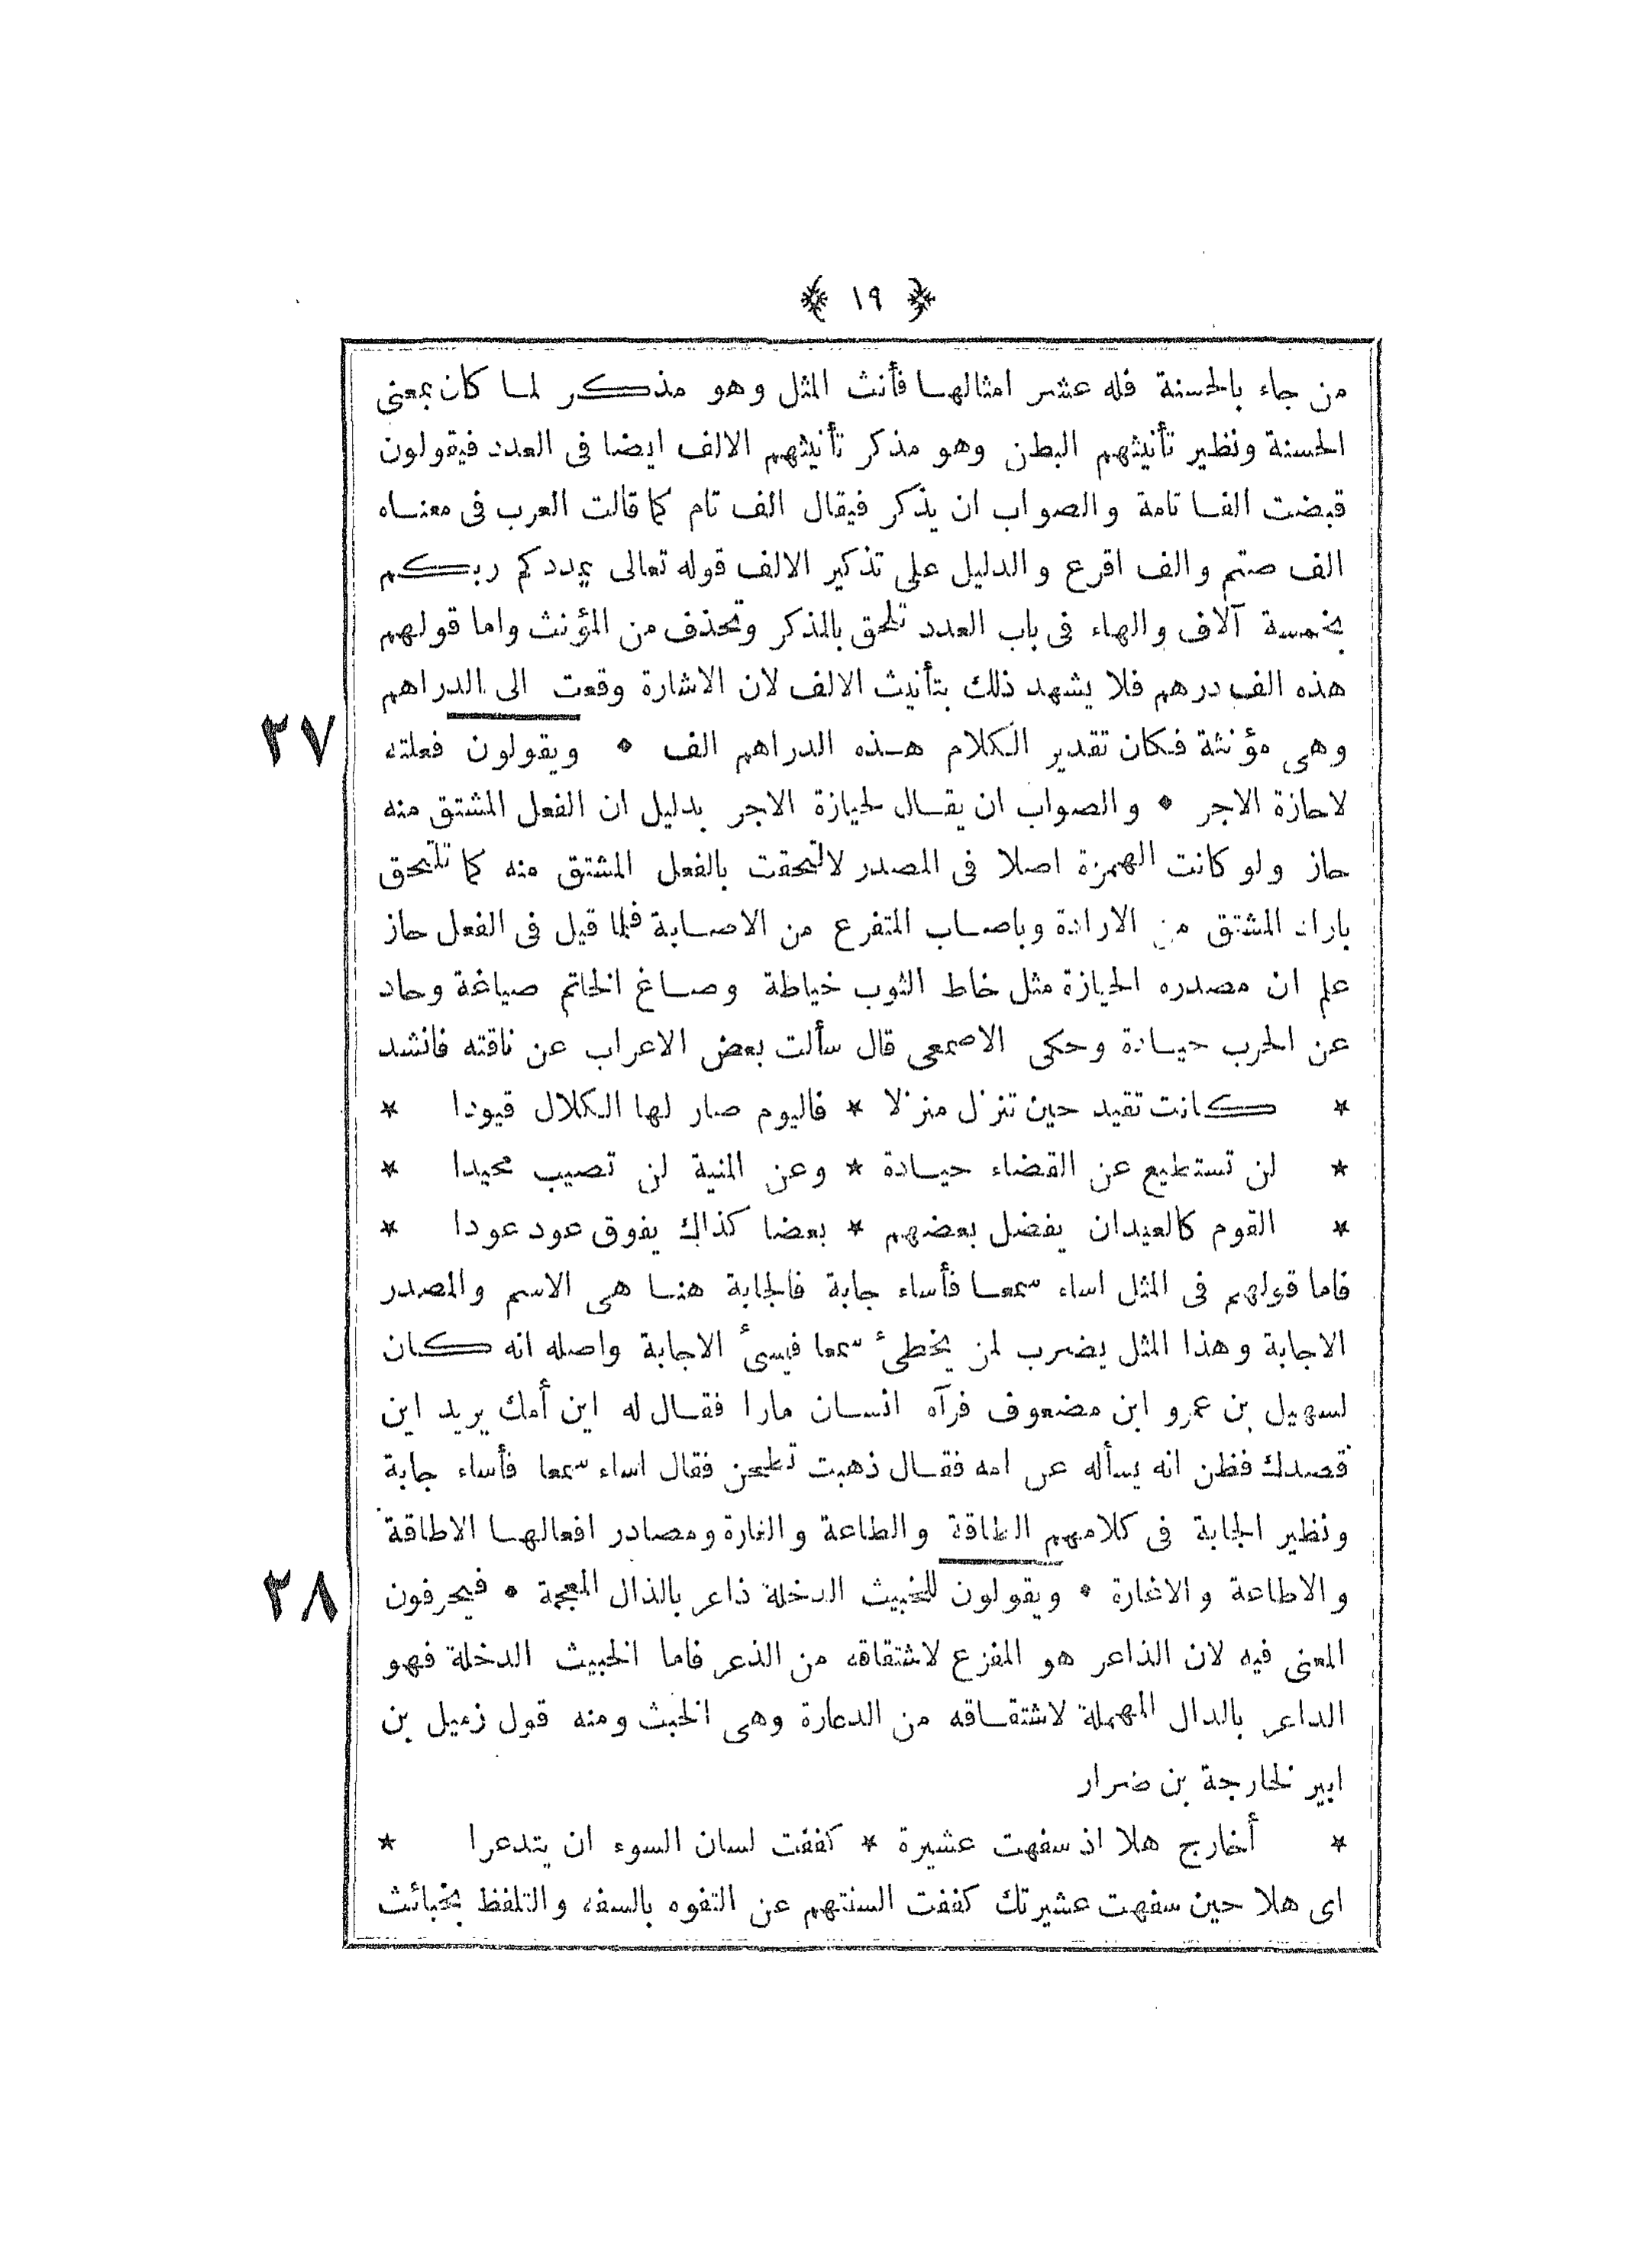 ﴿ ١٩ ﴾
من جاء بالحسنة فله عشر امثالها فأنث المثل وهو مذكر لما كان بمعنى
الحسنة ونظير تأنيثهم البطن وهو مذكر تأنيثهم الالف ايضا فى العدد فيقولون
قبضت الفا تامة والصواب ان يذكر فيقال الف تام كما قالت العرب فى معناه
الف صتم والف اقرع والدليل على تذكير الالف قوله تعالى يمددكم ربكم
بخمسة آلاف والهاء فى باب العدد تلحق بالمذكر وتحذف من المؤنث واما قولهم
هذه الف درهم فلا يشهد ذلك بتأنيث الالف لان الاشارة وقعت الى الدراهم
وهى مؤنثة فكان تقدير الكلام هذه الدراهم الف * ويقولون فعلته
٢٧
لاحازة الاجر * والصواب ان يقال لحيازة الاجر بدليل ان الفعل المشتق منه
حاز ولو كانت الهمزة اصلا فى المصدر لالتحقت بالفعل المشتق منه كما تلتحق
باراد المشتق من الارادة وباصاب المتفرع من الاصابة فلما قيل فى الفعل حاز
علم ان مصدره الحيازة مثل خاط الثوب خياطة وصاغ الخاتم صياغة وحاد
عن الحرب حيادة وحكى الاصمعى قال سألت بعض الاعراب عن ناقته فانشد
* كانت تقيد حين تنزل منزلا * فاليوم صار لها الكلال قيودا *
* لن تستطيع عن القضاء حيادة * وعن المنية لن تصيب محيدا *
* القوم كالعيدان يفضل بعضهم * بعضا كذاك يفوق عود عودا *
فاما قولهم فى المثل اساء سمعا فأساء جابة فالجابة هنا هى الاسم والمصدر
الاجابة وهذا المثل يضرب لمن يخطئ سمعا فيسئ الاجابة واصله انه كان
لسهيل بن عمرو ابن مضعوف فرآه انسان مارا فقال له اين أمك يريد اين
قصدك فظن انه يسأله عن امه فقال ذهبت تطحن فقال اساء سمعا فأساء جابة
ونظير الجابة فى كلامهم الطاقة والطاعة والغارة ومصادر افعالها الاطاقة
والاطاعة والاغارة * ويقولون للخبيث الدخلة ذاعر بالذال المعجمة * فيحرفون
٢٨
المعنى فيه لان الذاعر هو المفزع لاشتقاقه من الذعر فاما الخبيث الدخلة فهو
الداعر بالدال المهملة لاشتقاقه من الدعارة وهى الخبث ومنه قول زميل بن
ابير لخارجة بن ضرار
* أخارج هلا اذ سفهت عشيرة * كففت لسان السوء ان يتدعرا *
اى هلا حين سفهت عشيرتك كففت السنتهم عن التفوه بالسفه والتلفظ بخبائث